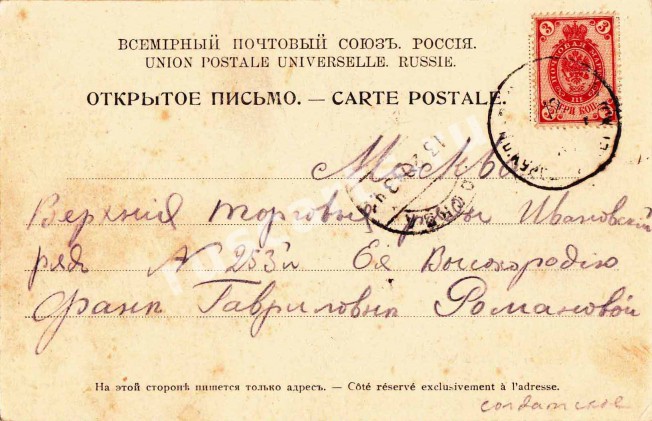 ВСЕМІРНЫЙ ПОЧТОВЫЙ СОЮЗЪ. РОССІЯ.
UNION POSTALE UNIVERSELLE. RUSSIE.
ОТКРЫТОЕ ПИСЬМО. — CARTE POSTALE.
3 3
ПОЧТОВАЯ МАРКА
ТРИ КОП.
Москва
Верхнія торговыя ряды Ивановскій
рядъ N 253й Ея Высокородію
Гавриловнѣ Романовой
На этой сторонѣ пишется только адресъ. — Côté réservé exclusivement à l'adresse.
солдатское